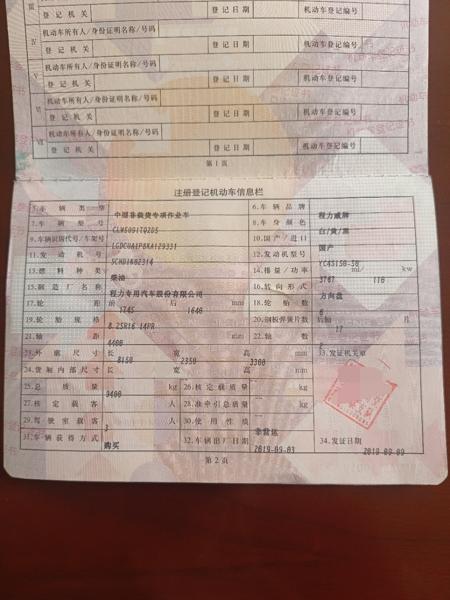 登记机关 登记日期 机动车登记编号
Ⅳ 机动车所有人/身份证明名称/号码
登记机关 登记日期 机动车登记编号
Ⅴ 机动车所有人/身份证明名称/号码
登记机关 登记日期 机动车登记编号
Ⅵ 机动车所有人/身份证明名称/号码
登记机关 登记日期 机动车登记编号
Ⅶ 机动车所有人/身份证明名称/号码
登记机关 登记日期 机动车登记编号
第1页
注册登记机动车信息栏
5.车辆类型 中型非载货专项作业车 6.车辆品牌 程力威牌
7.车辆型号 CLW5091TQZD5 8.车身颜色 白/黄/黑
9.车辆识别代号/车架号 LGDCWA1P8KA129331 10.国产/进口 国产
11.发动机号 12.发动机型号 YC4S150-50
13.燃料种类 柴油 14.排量/功率 3767 ml/ 110 kw
15.制造厂名称 程力专用汽车股份有限公司 16.转向形式 方向盘
17.轮距 前 1745 后 1640 mm 18.轮胎数 6
19.轮胎规格 8.25R16 14PR 20.钢板弹簧片数 后轴 片
21.轴距 4400 mm 22.轴数
23.外廓尺寸 长 8150 宽 2350 高 3300 mm 33.发证机关章
24.货厢内部尺寸 长 宽 高 mm
25.总质量 9400 kg 26.核定载质量 kg
27.核定载客 人 28.准牵引总质量 kg
29.驾驶室载客 3 人 30.使用性质 非营运
31.车辆获得方式 购买 32.车辆出厂日期 2019-09-03 34.发证日期 2019-09-09
第2页